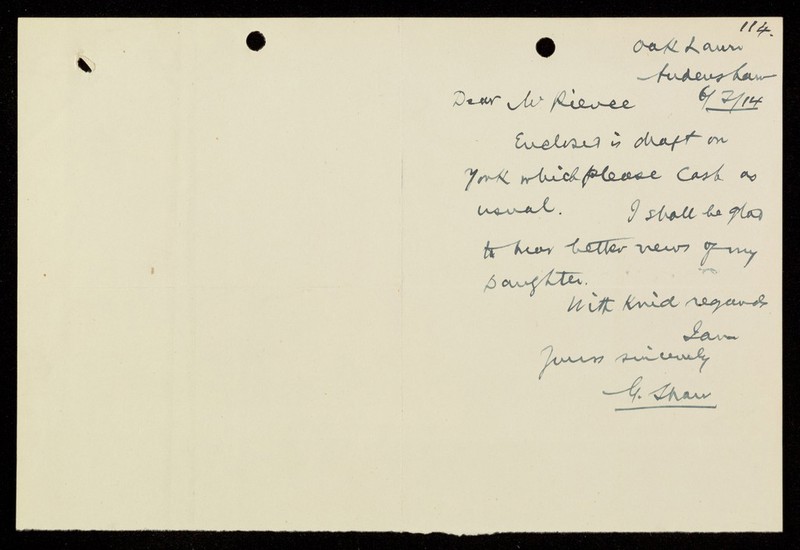 114.
Oak Lawn
Audenshaw
6/7/14
Dear Mr Pierce
Enclosed is draft on
York which please cash as
usual. I shall be glad
to hear better news of my
Daughter.
With kind regards
I am
Yours sincerely
G. Shaw